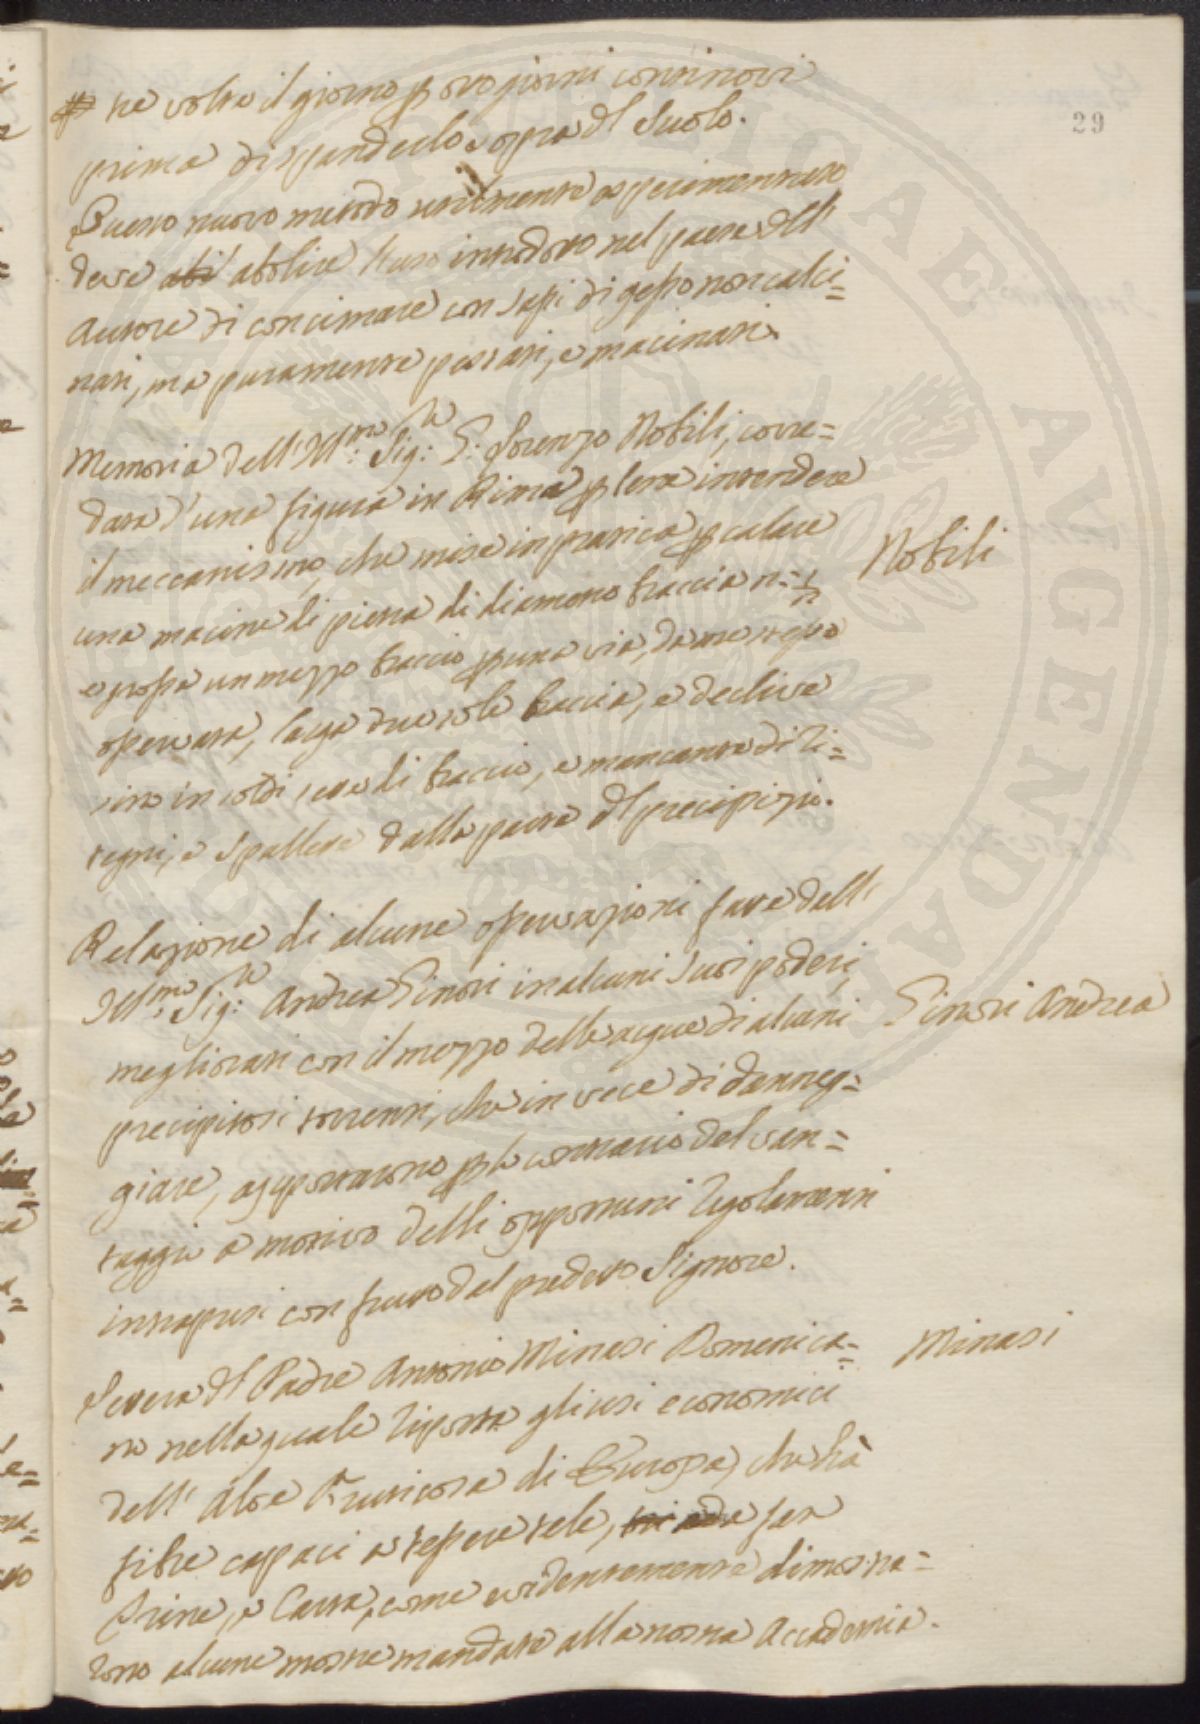 29
tre volte il giorno p otto giorni continovi
prima di spanderlo sopra dl Suolo.
Questo nuovo metodo utilmente esperimentato
deve abolire l'uso introdotto nel paese dell'
Autore di concimare con sassi di gesso non calci=
nati, ma puramente pestati, e macinati.
Memoria dell' Illmo: Sig:r S: Lorenzo Nobili, corre=
data d'una figura in Rima p lera intendere
il meccanismo, che mise in pratica p calare
Nobili
una macine di pietra di diametro braccia n:=
e grossa un mezzo braccio p una via, da me stesso
osservata, larga due sole braccia, e declive
sino in soldi sette di braccio, e mancante di ri=
tegni, e spallette dalla parte dl precipizio.
Relazione di alcune osservazioni fatte dall'
Illmo: Sig:r Andrea Ginori in alcuni Suoi poderi,
Ginori Andrea
megliorati con il mezzo delle acque di alcuni
precipitosi torrenti, che in vece di danneg=
giare, apportarono p lo contrario del van=
taggio a motivo delli opportuni regolamenti
intrapresi con frutto dal predetto Signore.
Lettera dl Padre Antonio Minasi Domenica=
Minasi
no nella quale riporta gli usi economici
dell' Aloe Fruticosa di Europa, che hà
fibre cappaci a tessere tele, far
Trine, e Carta, come evidentemente dimostra=
rono alcune mostre mandate alla nostra Accademia.